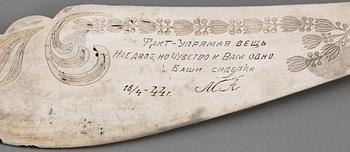 Факт-Упрямая вещь
Нас двое, но чувство к Вам одно.
Ваши сиделки
18/4-44г. М К